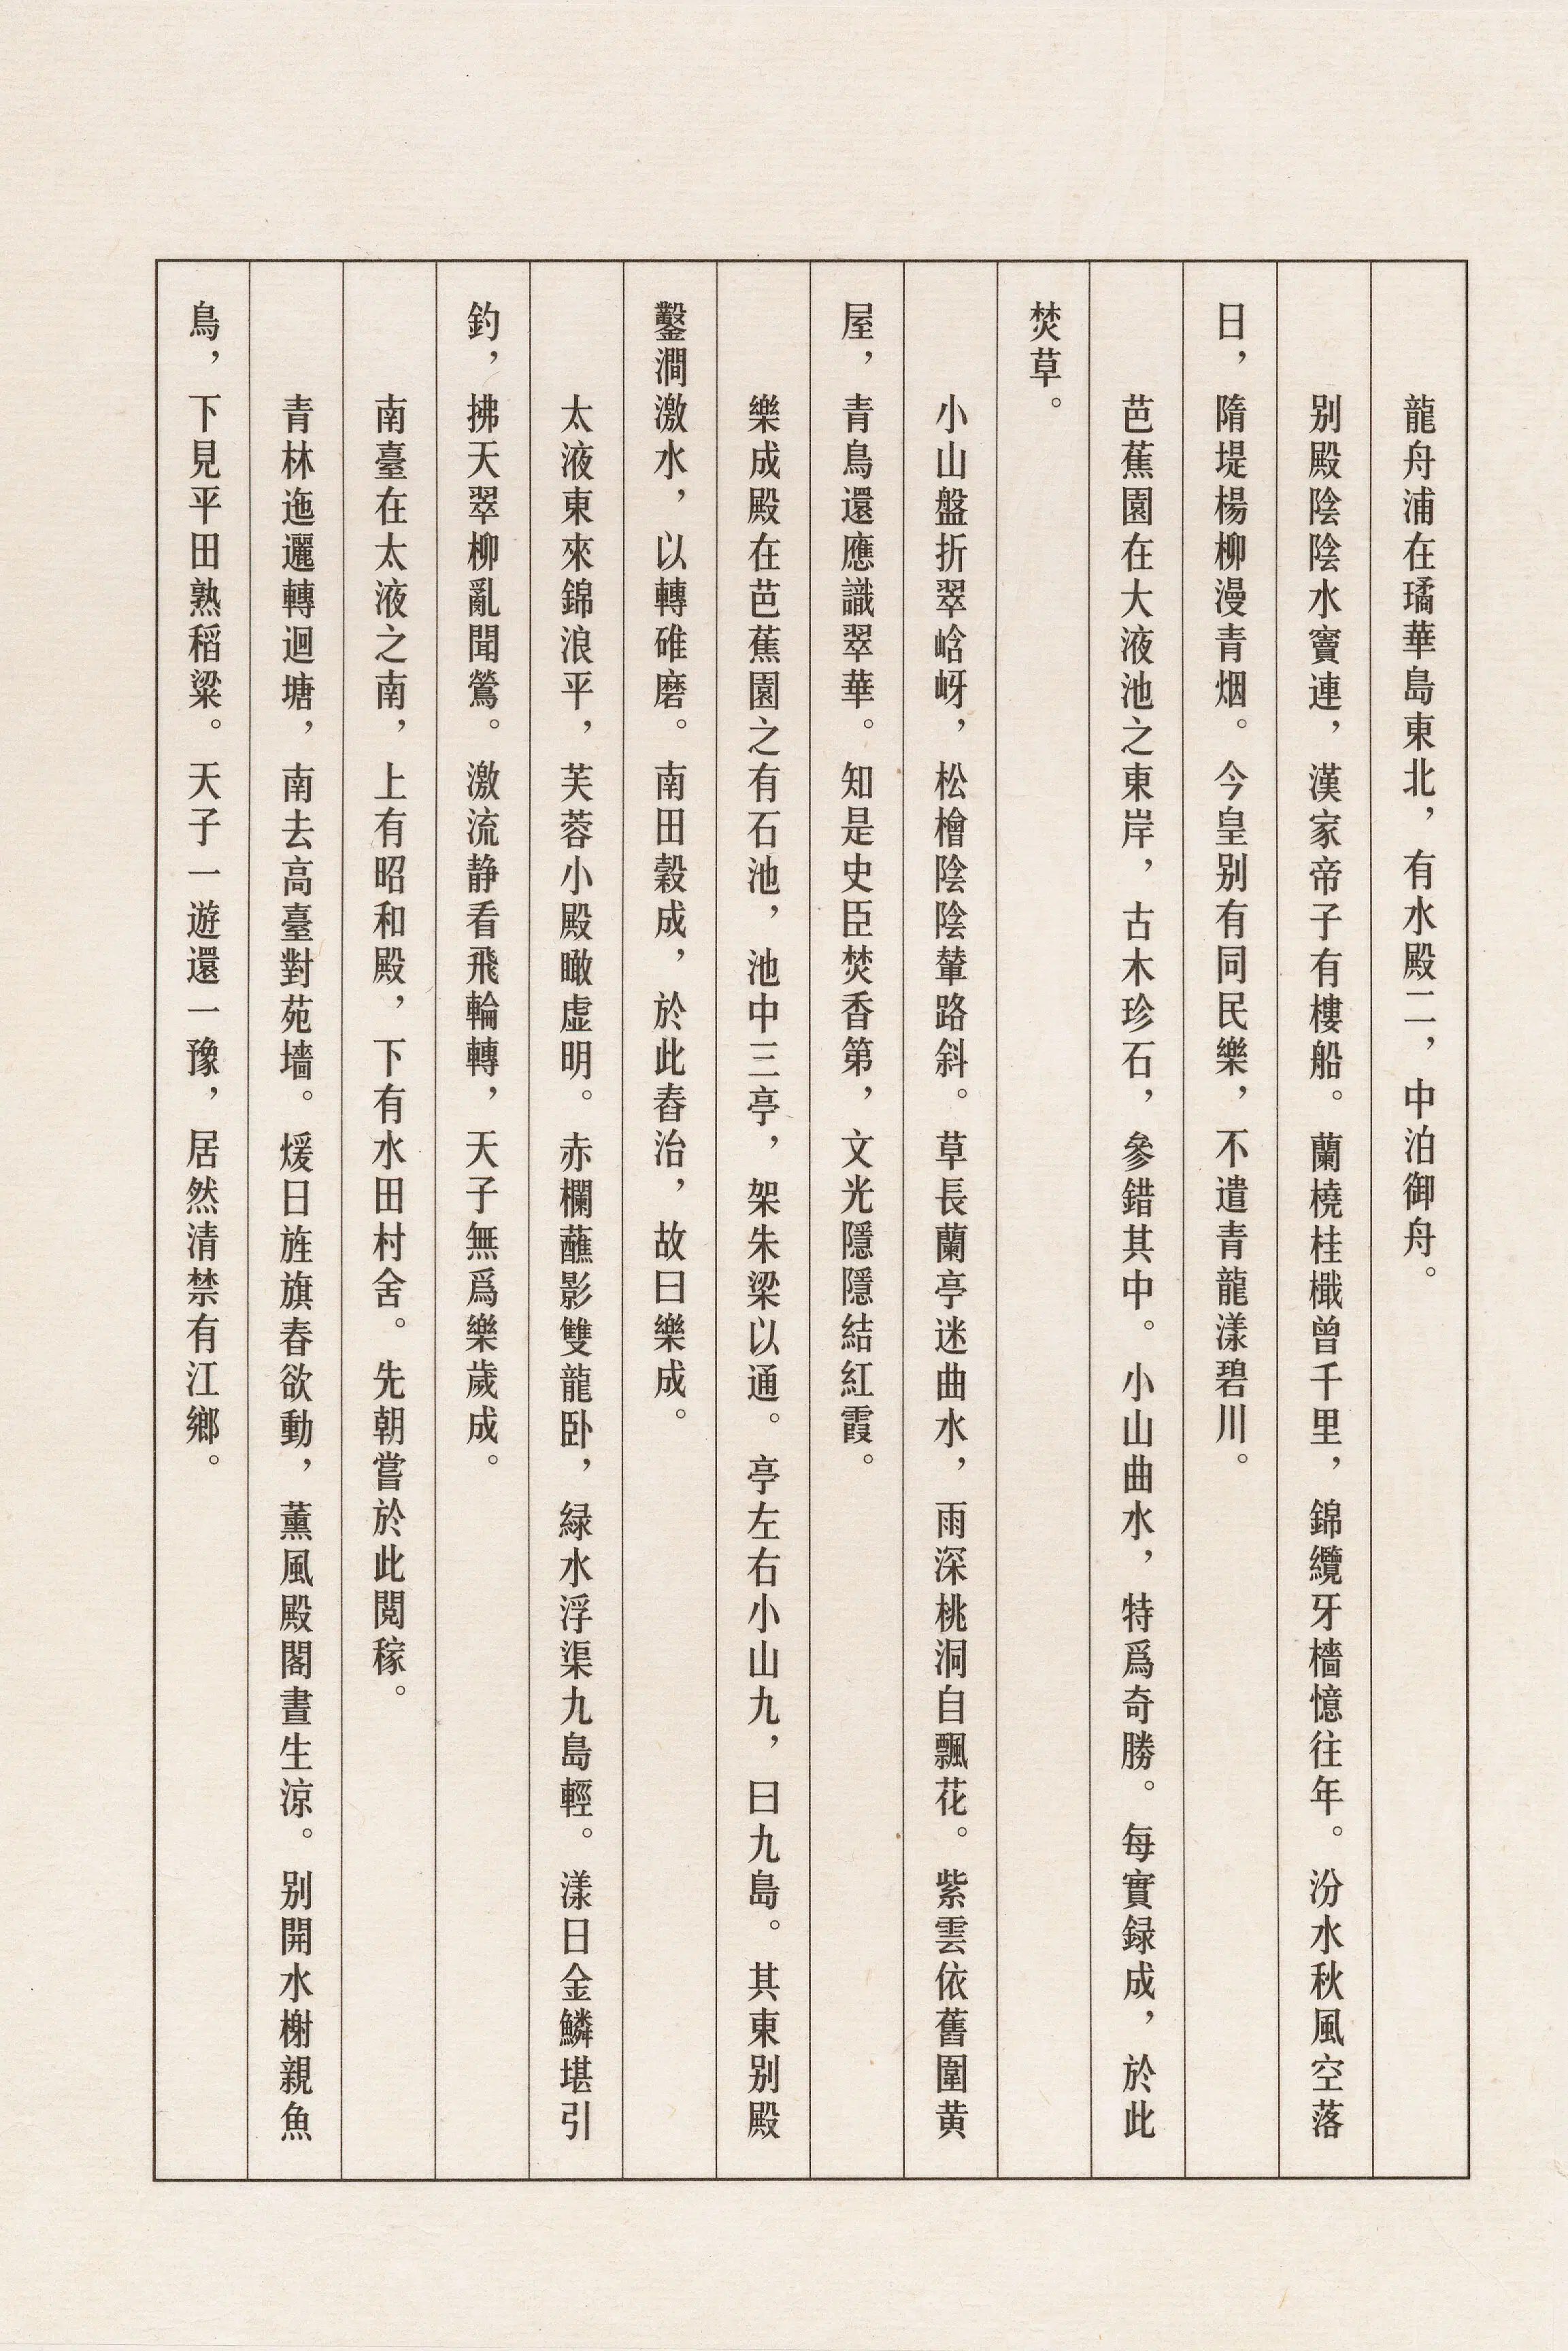 龍舟浦在璚華島東北，有水殿二，中泊御舟。
別殿陰陰水竇連，漢家帝子有樓船。蘭橈桂檝曾千里，錦纜牙檣憶往年。汾水秋風空落
日，隋堤楊柳漫青烟。今皇別有同民樂，不遣青龍漾碧川。
芭蕉園在大液池之東岸，古木珍石，參錯其中。小山曲水，特爲奇勝。每實録成，於此
焚草。
小山盤折翠峆岈，松檜陰陰輦路斜。草長蘭亭迷曲水，雨深桃洞自飄花。紫雲依舊圍黄
屋，青鳥還應識翠華。知是史臣焚香第，文光隱隱結紅霞。
樂成殿在芭蕉園之有石池，池中三亭，架朱梁以通。亭左右小山九，曰九島。其東別殿
鑿澗激水，以轉碓磨。南田穀成，於此舂治，故曰樂成。
太液東來錦浪平，芙蓉小殿瞰虚明。赤欄蘸影雙龍卧，緑水浮渠九島輕。漾日金鱗堪引
釣，拂天翠柳亂聞鶯。激流静看飛輪轉，天子無爲樂歲成。
南臺在太液之南，上有昭和殿，下有水田村舍。先朝嘗於此閲稼。
青林迤邐轉迴塘，南去高臺對苑墻。煖日旌旗春欲動，薰風殿閣晝生涼。別開水榭親魚
鳥，下見平田熟稻粱。天子一遊還一豫，居然清禁有江鄉。